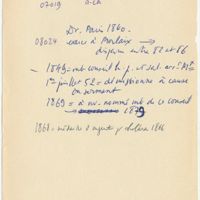 07019
Dr. Paris 1840.
08024 exerce à Morlaix
disparu entre 82 et 86
- 1849 = mb conseil h. p. et sal. arr.
1er juillet 52 = démissionne à cause
du serment
1869 = à nv. nommé mb de ce conseil
1879
1868 = médaille d'argent pr choléra 1866